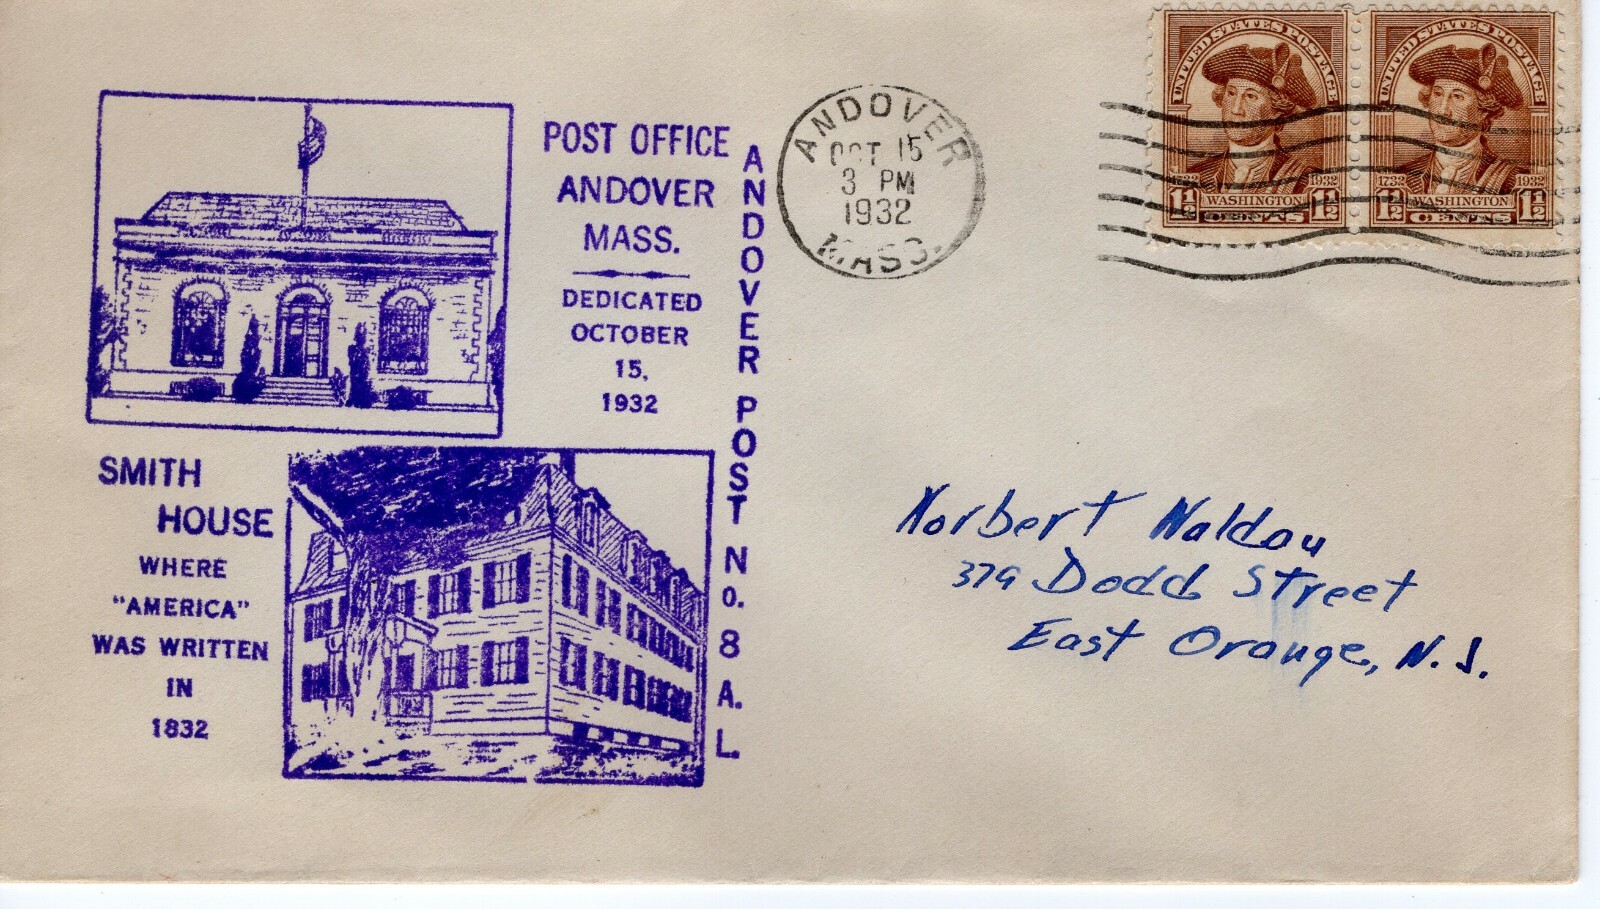 POST OFFICE
ANDOVER
MASS.
DEDICATED
OCTOBER
15,
1932
ANDOVER POST No. 8 A. L.
SMITH
HOUSE
WHERE
"AMERICA"
WAS WRITTEN
IN
1832
ANDOVER
OCT 15
3 PM
1932
MASS.
UNITED STATES POSTAGE
1732 1932
1½ WASHINGTON 1½
CENTS
UNITED STATES POSTAGE
1732 1932
1½ WASHINGTON 1½
CENTS
Norbert Waldau
379 Dodd Street
East Orange, N.J.